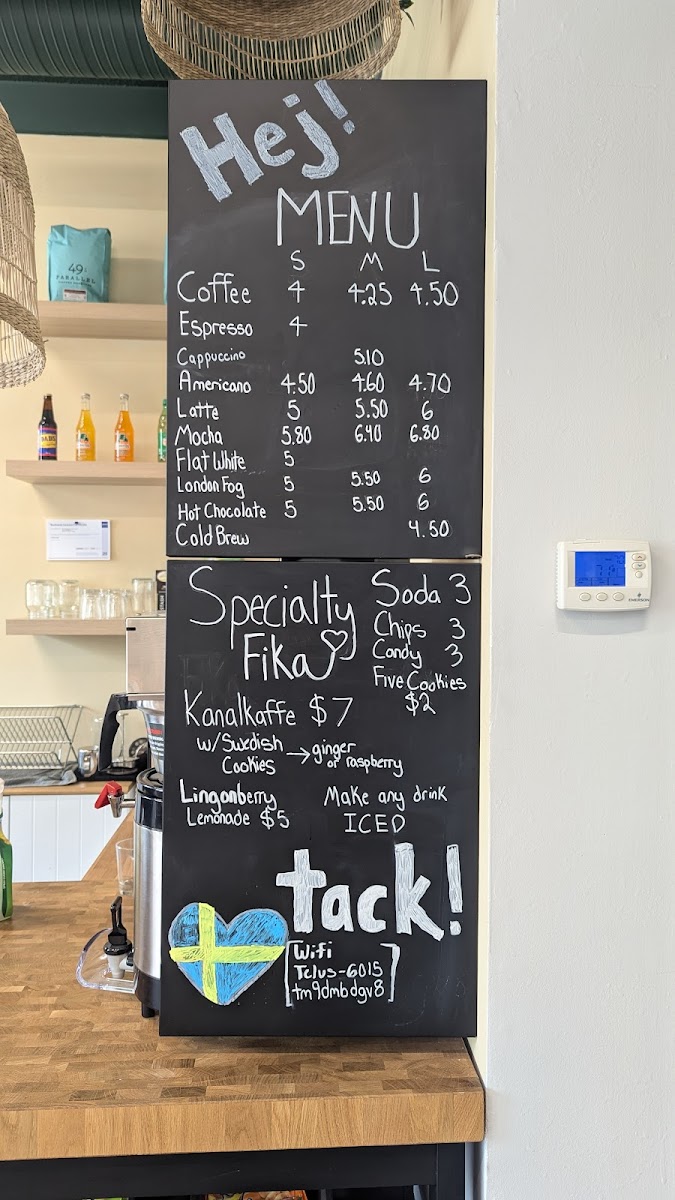 Hej!
MENU
S M L
Coffee 4 4.25 4.50
Espresso 4
Cappuccino 5.10
Americano 4.50 4.60 4.70
Latte 5 5.50 6
Mocha 5.80 6.40 6.80
Flat White 5
London Fog 5 5.50 6
Hot Chocolate 5 5.50 6
Cold Brew 4.50
Specialty
Fika
Soda 3
Chips 3
Candy 3
Five Cookies
$2
Kanalkaffe $7
w/Swedish
Cookies → ginger
or raspberry
Lingonberry
Lemonade $5
Make any drink
ICED
tack!
Wifi
Telus-6015
tm9dmbdgv8
49th
PARALLEL
EMERSON